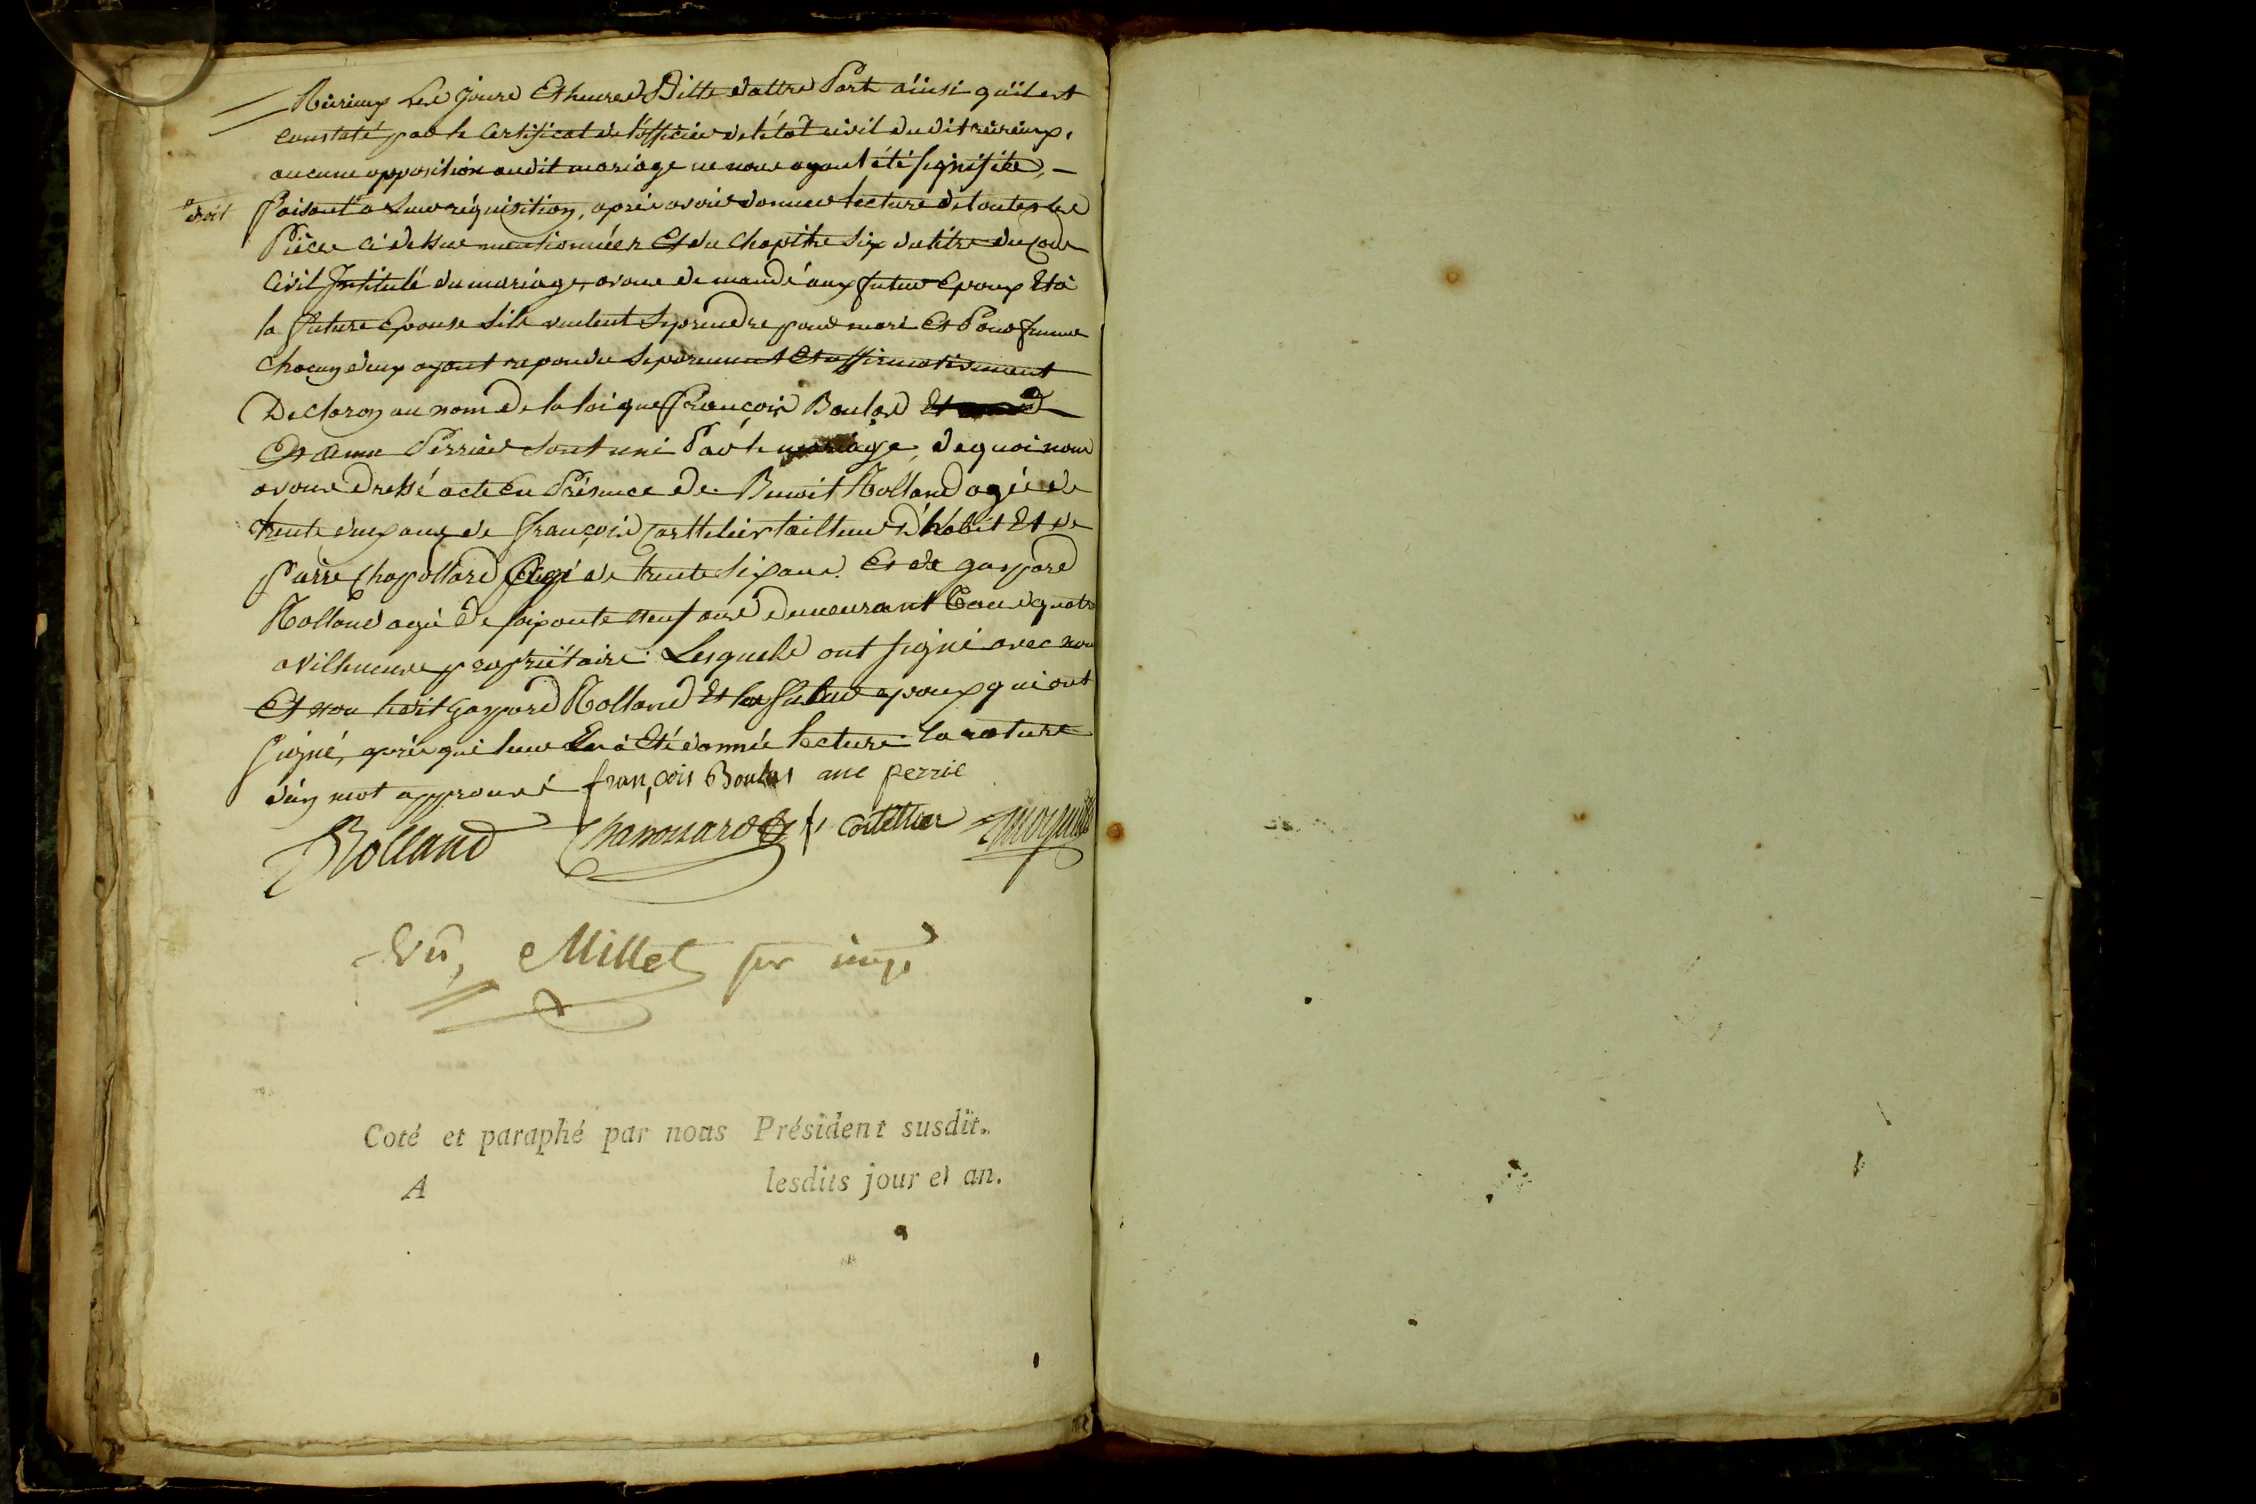 Rèrieux Les Jours Et heures Ditte dattre Part ainsi qu'il est
constaté par le Certificat de l'officier de l'état civil du dit reirieux,
aucune opposition audit mariage ne nous ayant été signifiée, —
droit faisant a Leur réquisition, après avoir donner lecture de toutes les
Pièces ci dessus mentionnées Et du Chapitre Six du titre du Code
Civil Intitulé du mariage, avons demandé aux futur Epoux Et à
la future Epouse s'ils veulent se prendre pour mari Et Pour femme
chacun d'eux ayant repondu separement Et affirmativement
Declaron au nom de la loi que françois Boulas Et
Et anne Perrier sont uni Par le mariage, de quoi nous
avons dressé acte En Présence de Benoit Rolland agée de
trente deux ans, de françois Corttelier tailleur d'habit Et de
Pierre Chapollard Agé de trente six ans. Et de gaspard
Rolland agé de soixante neuf ans demeurant tous quatre
a villeneuve propriétaire. Lesquels ont signé avec nous
Et non ledit gaspard Rolland Et les futur epoux qui ont
signé, après qui leur En à Eté donnée lecture. la rature
d'un mot approuvé françois Boulas ane perrie
Rolland f cortellier
Vû, Millet
Coté et paraphé par nous Président susdit.
A lesdits jour et an.